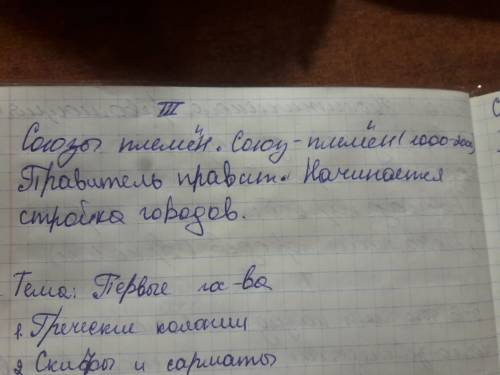 III
Союзы племён. Союз-племён (1000-200)
Правитель правит. Начинается
стройка городов.
Тема: Первые гос-ва
1. Греческие колонии
2 Скифы и сарматы